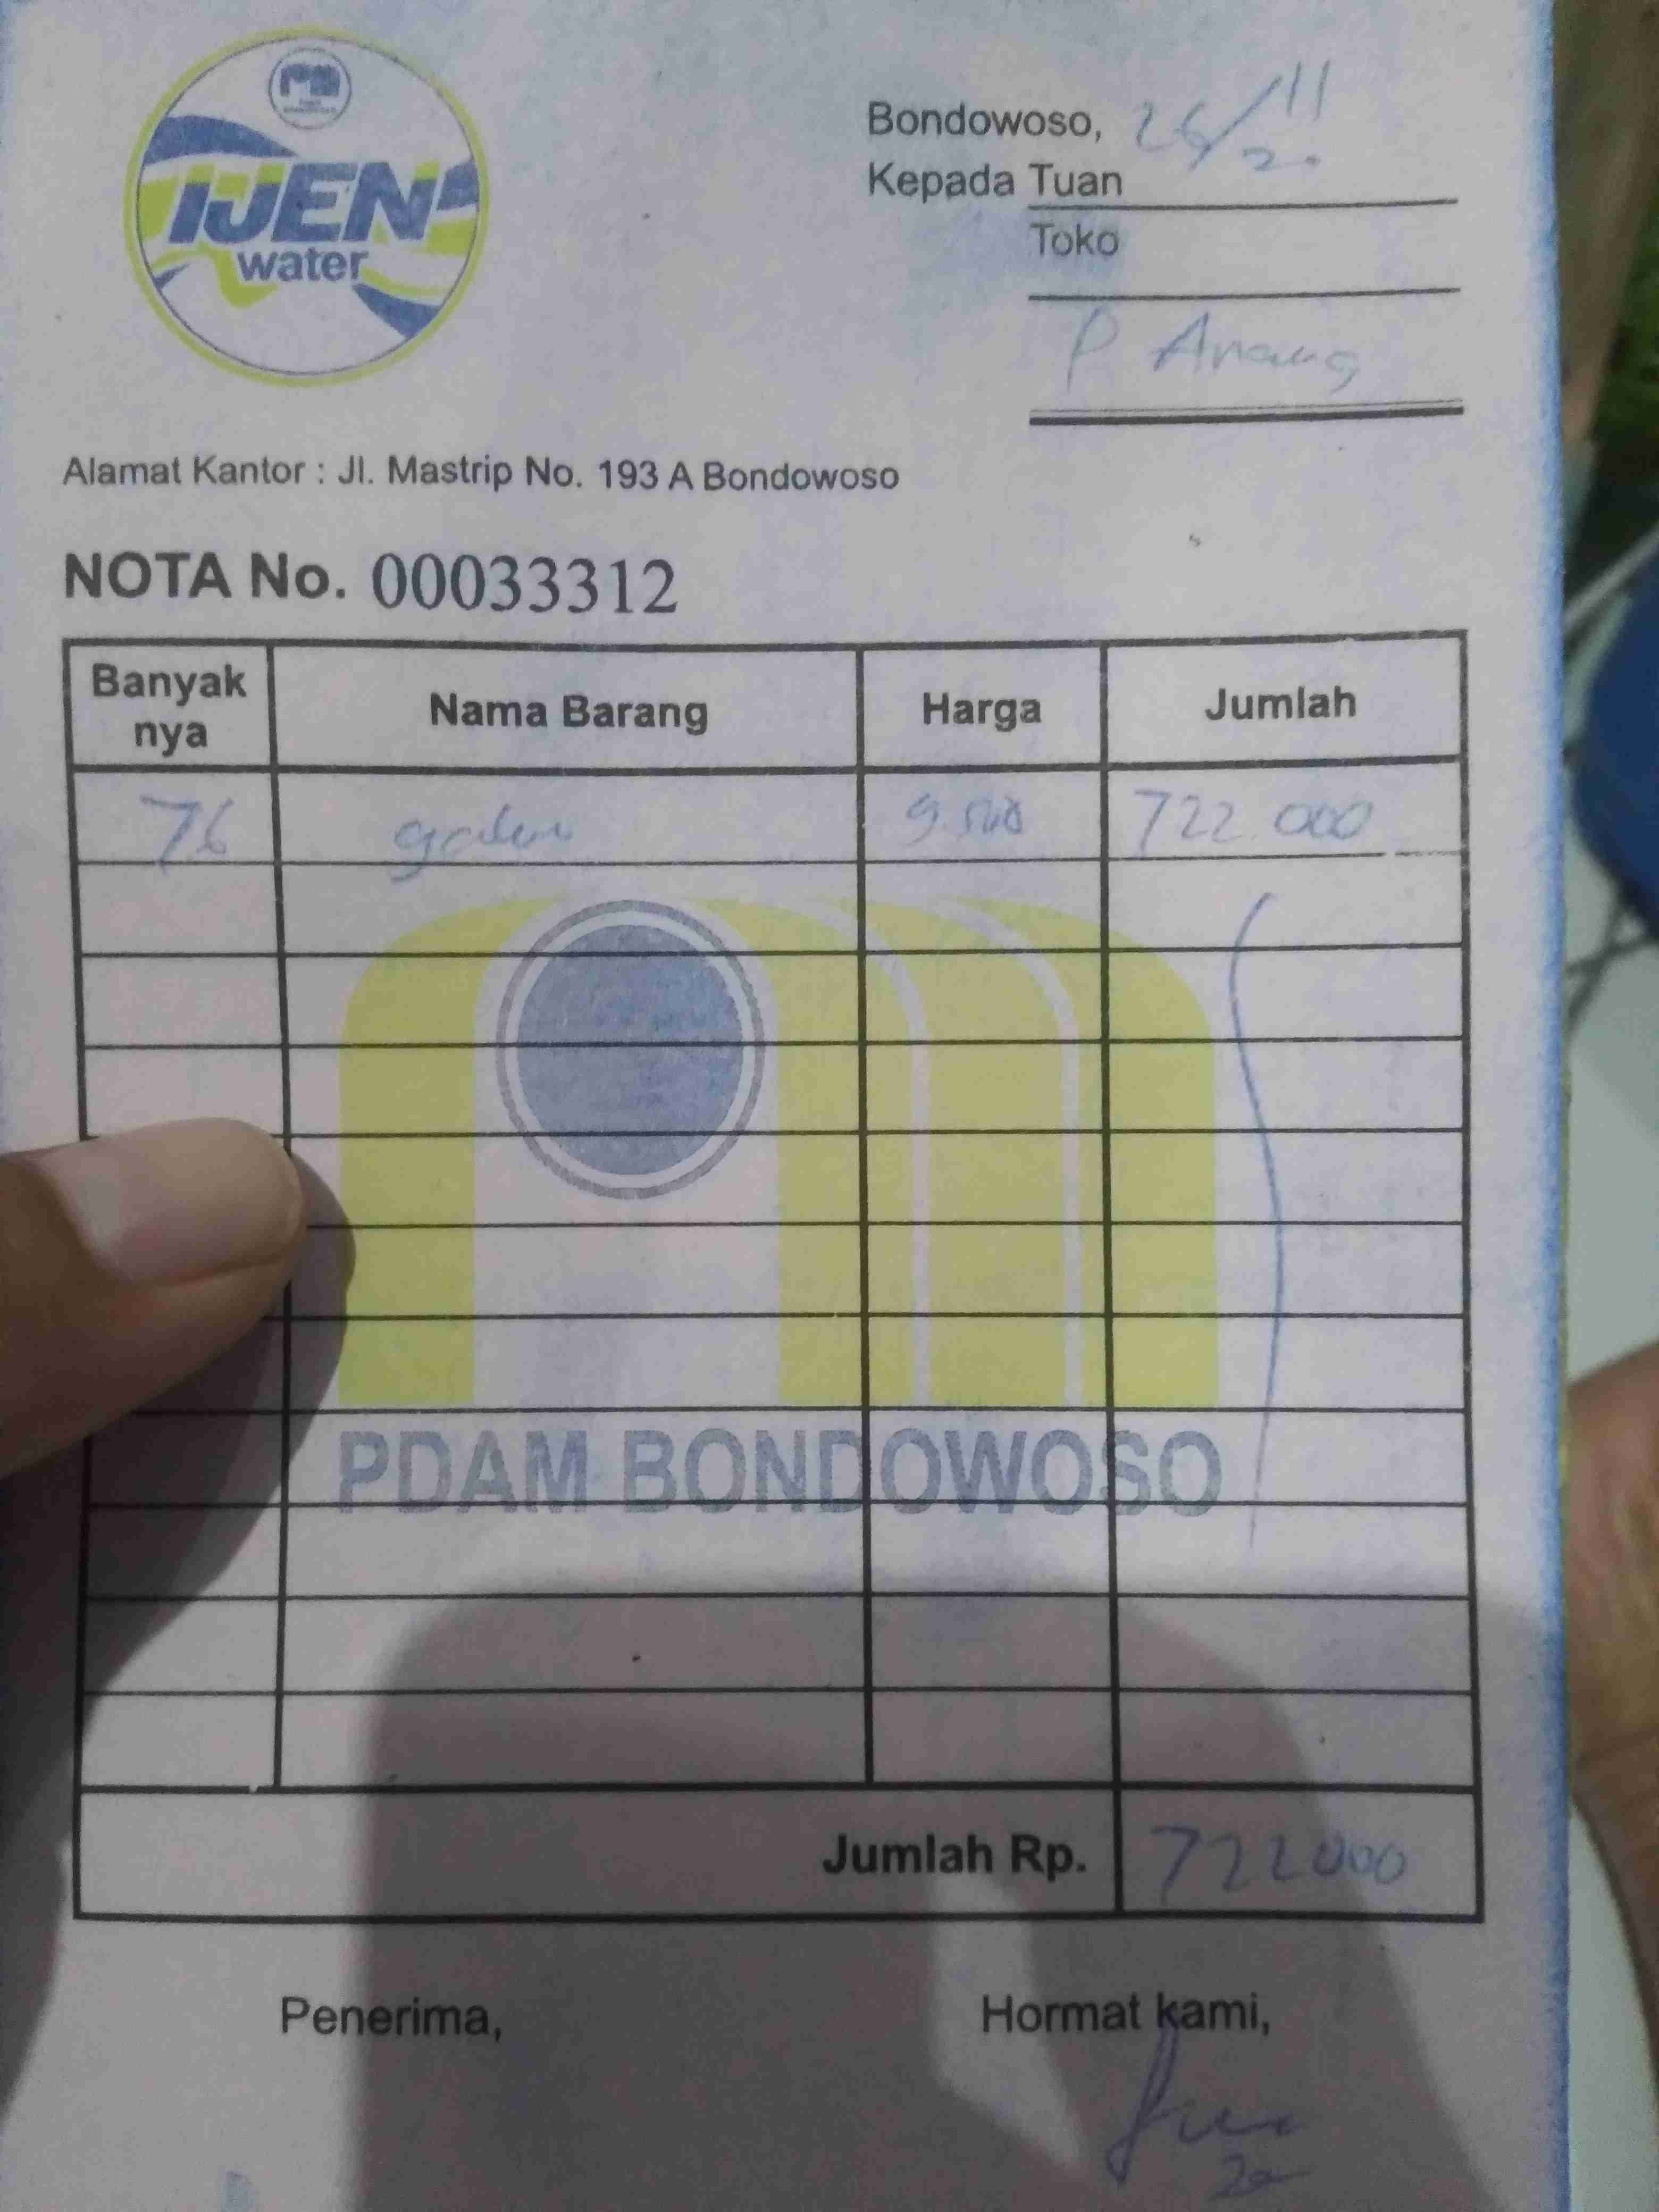 IJEN
water
Bondowoso, 26/11 20
Kepada Tuan
Toko
P Anang
Alamat Kantor : Jl. Mastrip No. 193 A Bondowoso
NOTA No. 00033312
Banyak nya Nama Barang Harga Jumlah
76 galon 9.500 722 000
PDAM BONDOWOSO
Jumlah Rp. 722000
Penerima, Hormat kami,
20